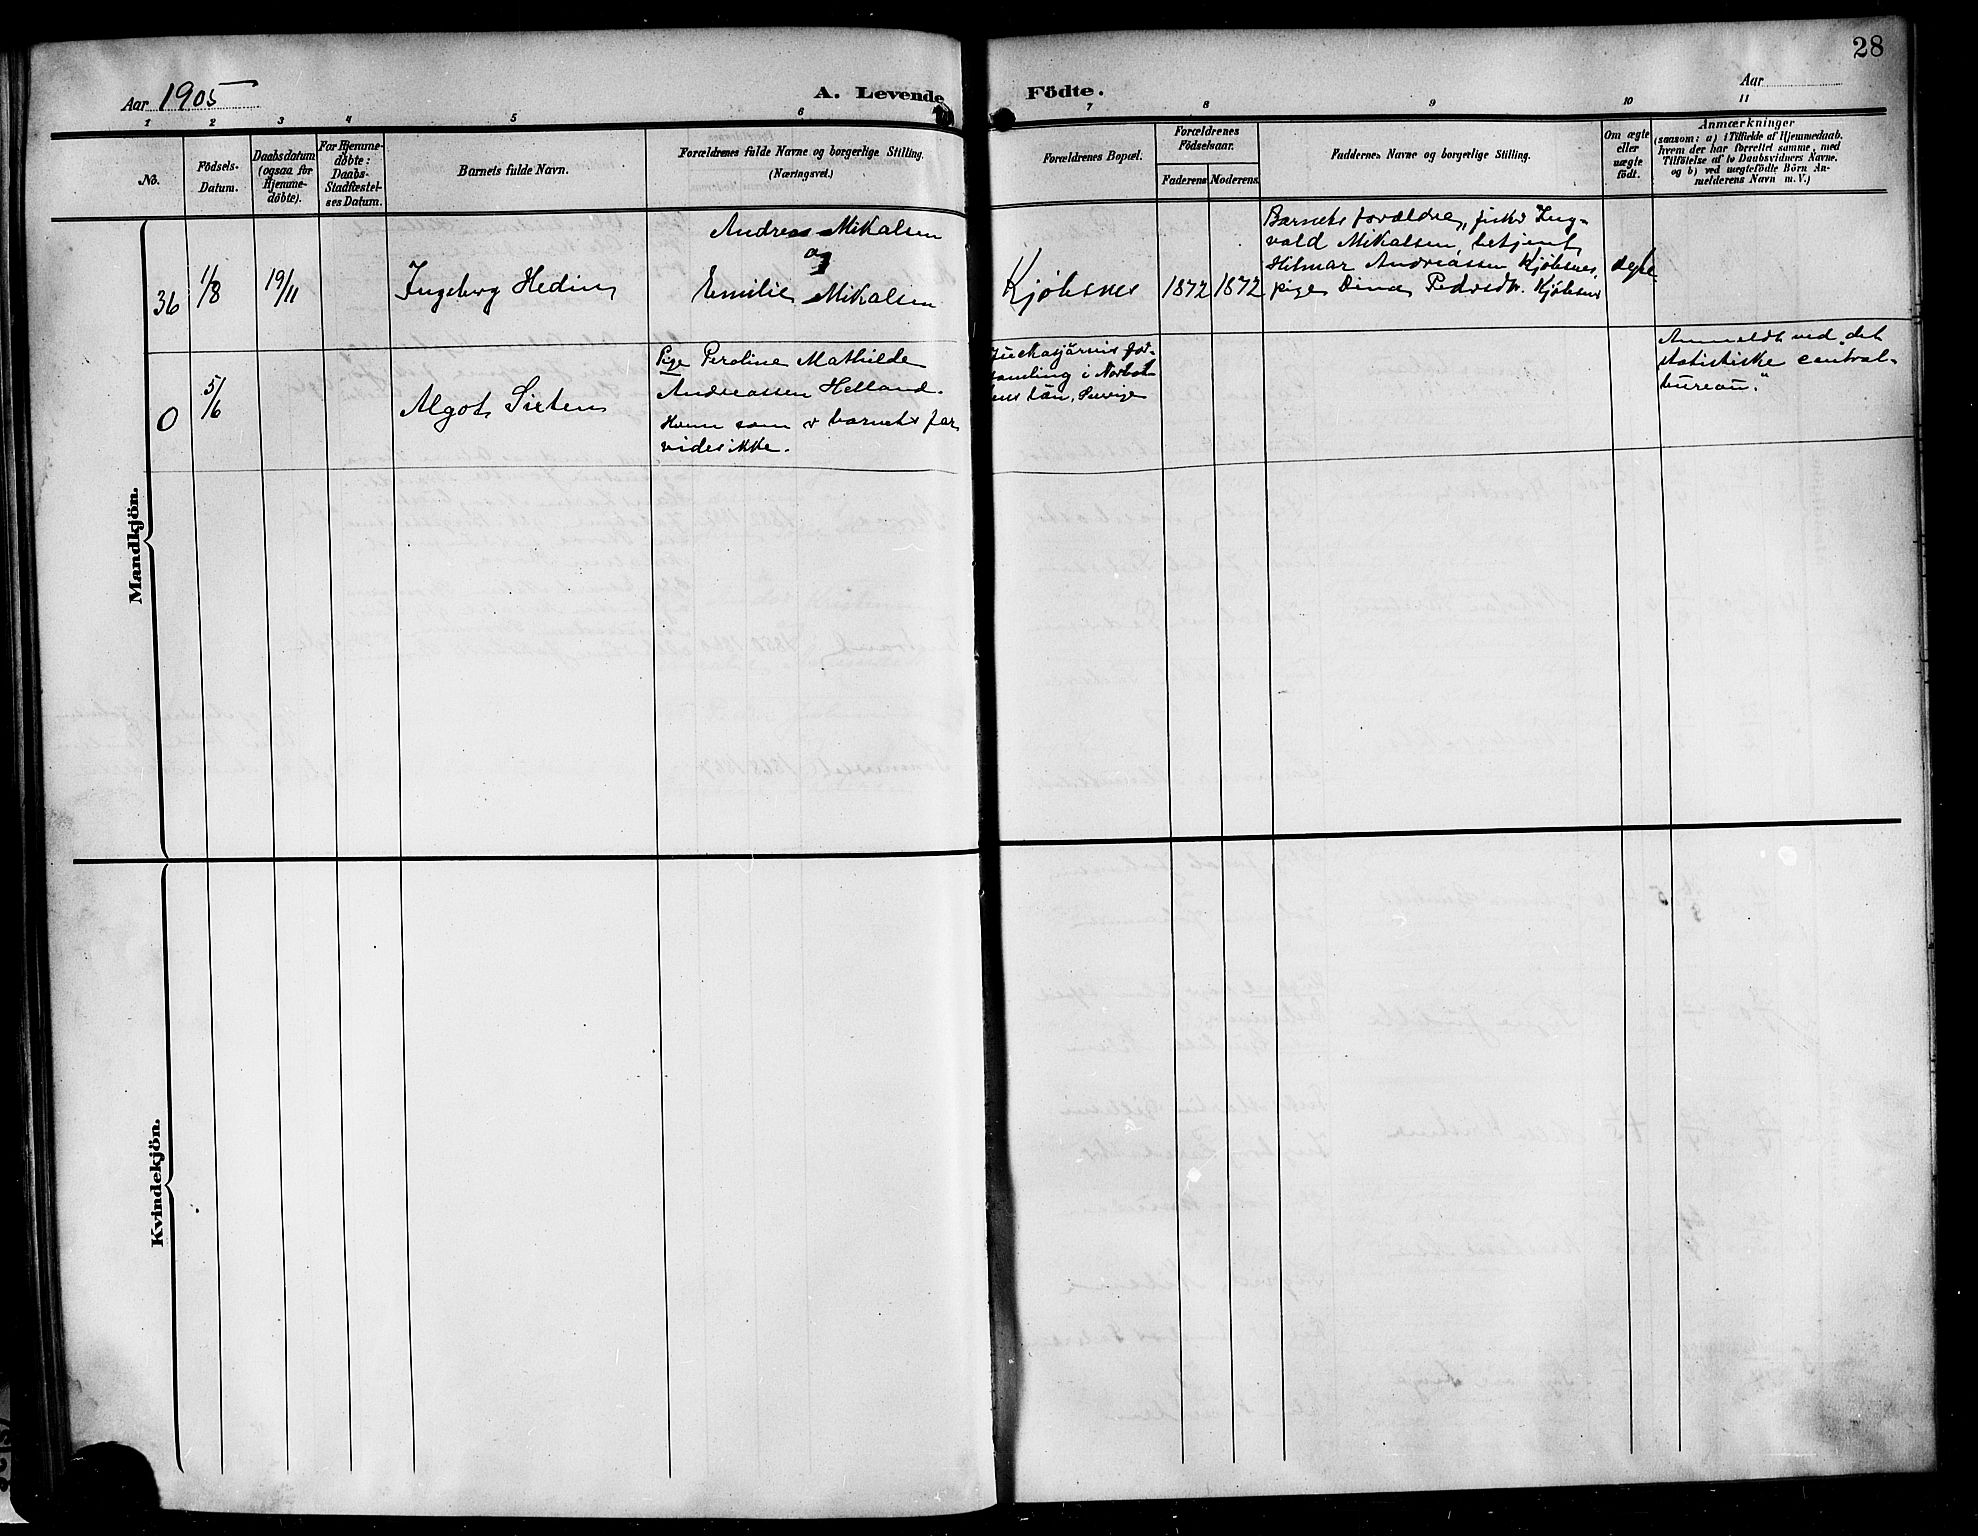 28
Aar 1905
A. Levende Födte.
Aar
1 2 3 4 5 6 7 8 9 10 11
No.
Födsels-
Datum.
Daabsdatum
(ogsaa for
Hjemme-
døbte).
For Hjemme-
døbte:
Daabs-
Stadfæstel-
ses Datum.
Barnets fulde Navn.
Forældrenes fulde Navne og borgerlige Stilling.
(Næringsvei.)
Forældrenes Bopæl.
Forældrenes
Födselsaar.
Faderens. Moderens.
Faddernes Navne og borgerlige Stilling.
Om ægte
eller
uægte
født.
Anmærkninger
(saasom: a) i Tilfælde af Hjemmedaab.
hvem der har forrettet samme, med
Tilføielse af to Daabsvidners Navne.
og b) ved uægtefödte Börn An-
melderens Navn m. V.)
Mandkjön.
36
1/8
19/11
Ingeberg Hedin
Andreas Mikalsen
og
Emilie Mikalsen
Kjøbsnes
1872
1872
Barnets forældre, fisker Ing-
vald Mikalsen, betjent
Hilmar Andreassen Kjøbsnes,
pige Dina Pedersdtr. Kjøbsnes
ægte
0
5/6
Algot Sixten
Pige Peroline Mathilde
Andreassen Helland.
Hvem som er barnets far
vides ikke.
Juckasjärvis for-
samling i Norbot-
tens län, Sverige
Anmeldt ved "det
statistiske central-
bureau."
Kvindekjön.